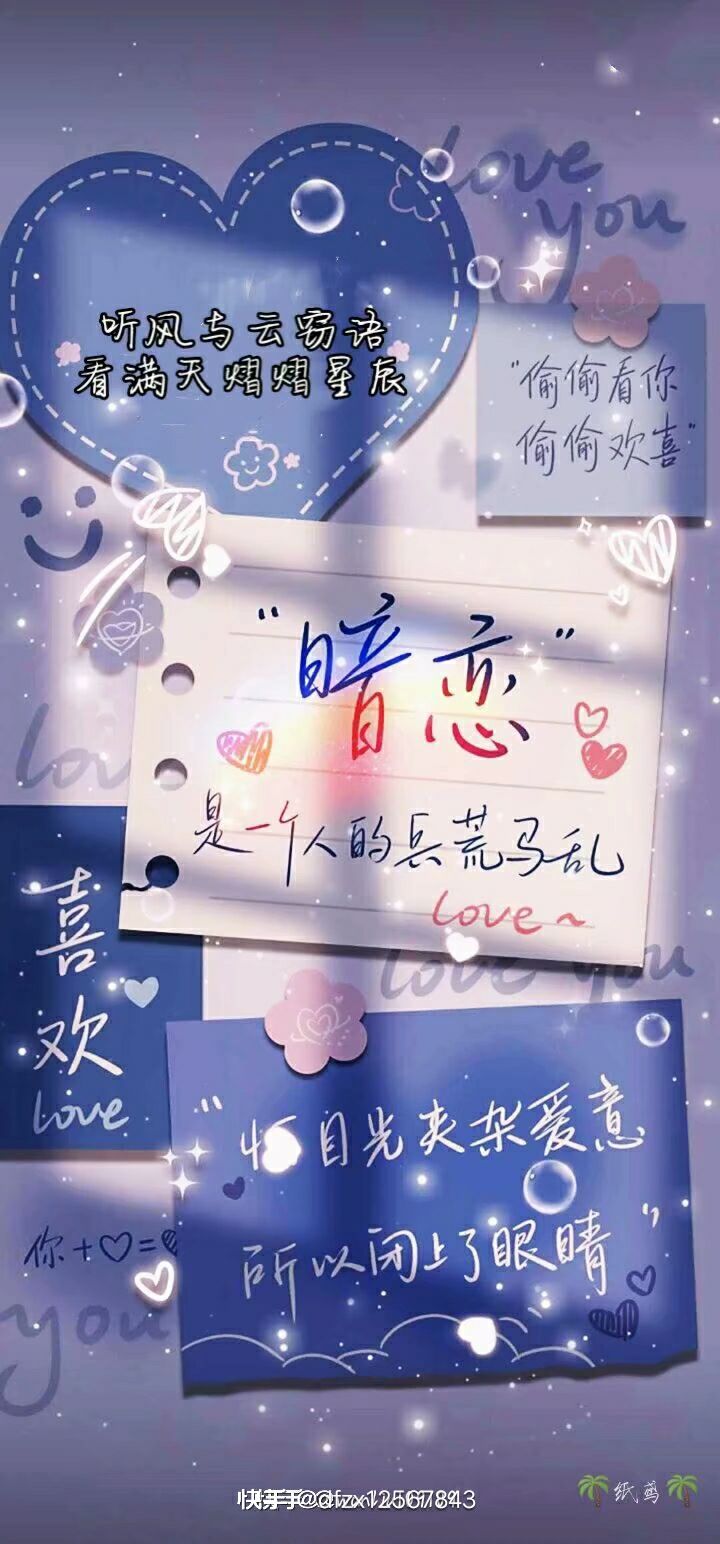 love
you
听风与云窃语
看满天熠熠星辰
"偷偷看你
偷偷欢喜"
"暗恋"
是一个人的兵荒马乱
love~
love
love you
喜欢
love
"怕目光夹杂爱意
所以闭上了眼睛"
你+♡=
you
纸鸢